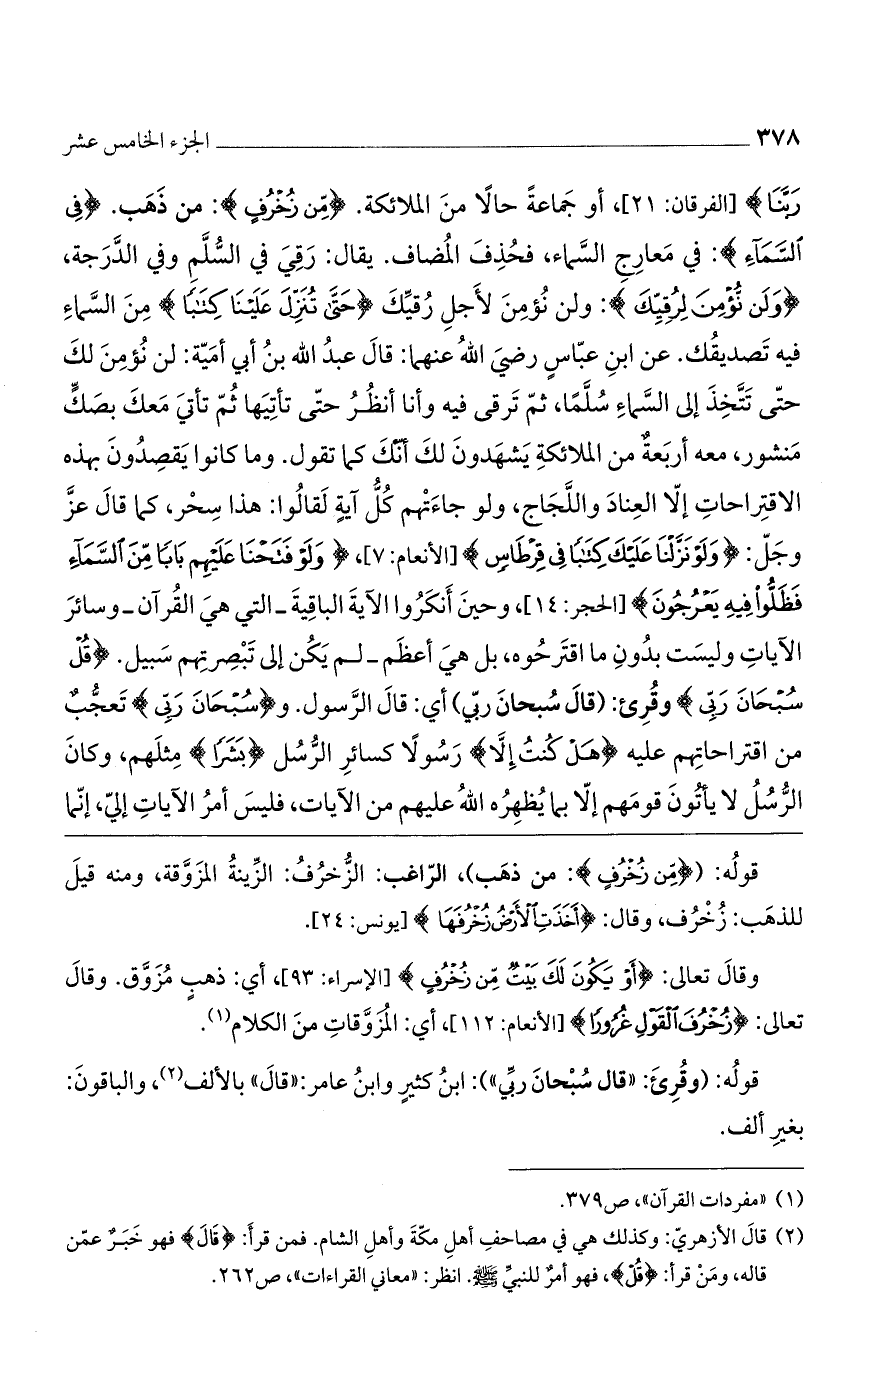 ٣٧٨ الجزء الخامس عشر
رَبَّنَا﴾ [الفرقان: ٢١]، أو جَماعةً حالًا منَ الملائكة. ﴿مِّن زُخْرُفٍ﴾: من ذَهَب. ﴿فِى
ٱلسَّمَآءِ﴾: في مَعارِجِ السَّماء، فحُذِفَ المُضاف. يقال: رَقِيَ في السُّلَّمِ وفي الدَّرَجة،
﴿وَلَن نُّؤْمِنَ لِرُقِيِّكَ﴾: ولن نُؤمِنَ لأجلِ رُقيِّكَ ﴿حَتَّىٰ تُنَزِّلَ عَلَيْنَا كِتَٰبًا﴾ مِنَ السَّماءِ
فيه تَصديقُك. عن ابنِ عبّاسٍ رضيَ اللهُ عنهما: قالَ عبدُ الله بنُ أبي أميّة: لن نُؤمِنَ لكَ
حتّى تَتَّخِذَ إلى السَّماءِ سُلَّمًا، ثمّ تَرقى فيه وأنا أنظُرُ حتّى تأتِيَها ثُمّ تأتيَ مَعكَ بصَكٍّ
مَنشور، معه أربَعةٌ من الملائكةِ يَشهَدونَ لكَ أنّكَ كما تقول. وما كانوا يَقصِدُونَ بهذه
الاقتِراحاتِ إلّا العِنادَ واللَّجَاج، ولو جاءَتْهم كُلُّ آيةٍ لَقالُوا: هذا سِحْر، كما قالَ عزَّ
وجَلّ: ﴿وَلَوْ نَزَّلْنَا عَلَيْكَ كِتَٰبًا فِى قِرْطَاسٍ﴾ [الأنعام: ٧]، ﴿وَلَوْ فَتَحْنَا عَلَيْهِم بَابًا مِّنَ ٱلسَّمَآءِ
فَظَلُّواْ فِيهِ يَعْرُجُونَ﴾ [الحجر: ١٤]، وحينَ أَنكَرُوا الآيةَ الباقِيةَ ـ التي هيَ القُرآن ـ وسائرَ
الآياتِ وليسَت بدُونِ ما اقتَرحُوه، بل هيَ أعظَم ـ لم يَكُن إلى تَبْصِرتِهم سَبيل. ﴿قُلْ
سُبْحَانَ رَبِّى﴾ وقُرِئ: (قالَ سُبحانَ ربّي) أي: قالَ الرَّسول. و﴿سُبْحَانَ رَبِّى﴾ تَعجُّبٌ
من اقتراحاتِهم عليه ﴿هَلْ كُنتُ إِلَّا﴾ رَسُولًا كسائرِ الرُّسُل ﴿بَشَرًا﴾ مِثلَهم، وكانَ
الرُّسُلُ لا يأتُونَ قومَهم إلّا بما يُظهِرُه اللهُ عليهم من الآيات، فليسَ أمرُ الآياتِ إليّ، إنّما
قولُه: (﴿مِّن زُخْرُفٍ﴾: من ذهَب)، الرّاغب: الزُّخرُفُ: الزِّينةُ المزَوَّقة، ومنه قيلَ
للذهَب: زُخْرُف، وقال: ﴿أَخَذَتِ ٱلْأَرْضُ زُخْرُفَهَا﴾ [يونس: ٢٤].
وقالَ تعالى: ﴿أَوْ يَكُونَ لَكَ بَيْتٌ مِّن زُخْرُفٍ﴾ [الإسراء: ٩٣]، أي: ذهبٍ مُزَوَّق. وقالَ
تعالى: ﴿زُخْرُفَ ٱلْقَوْلِ غُرُورًا﴾ [الأنعام: ١١٢]، أي: المُزَوَّقاتِ منَ الكلام(١).
قولُه: (وقُرِئَ: «قال سُبْحانَ ربِّي»): ابنُ كثيرٍ وابنُ عامر: «قالَ» بالألف(٢)، والباقونَ:
بغيرِ ألف.
(١) «مفردات القرآن»، ص٣٧٩.
(٢) قالَ الأزهريّ: وكذلك هي في مصاحفِ أهلِ مكّةَ وأهلِ الشام. فمن قرأَ: ﴿قَالَ﴾ فهو خَبَرٌ عمّن
قاله، ومَنْ قرأ: ﴿قُلْ﴾، فهو أمرٌ للنبيِّ ﷺ. انظر: «معاني القراءات»، ص٢٦٢.